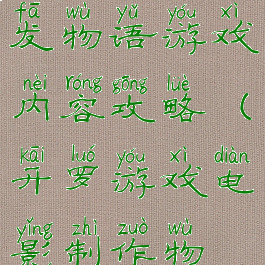 fā wù yǔ yóu xì
发物语游戏
nèi róng gōng lüè
内容攻略（
kāi luó yóu xì diàn
开罗游戏电
yǐng zhì zuò wù
影制作物